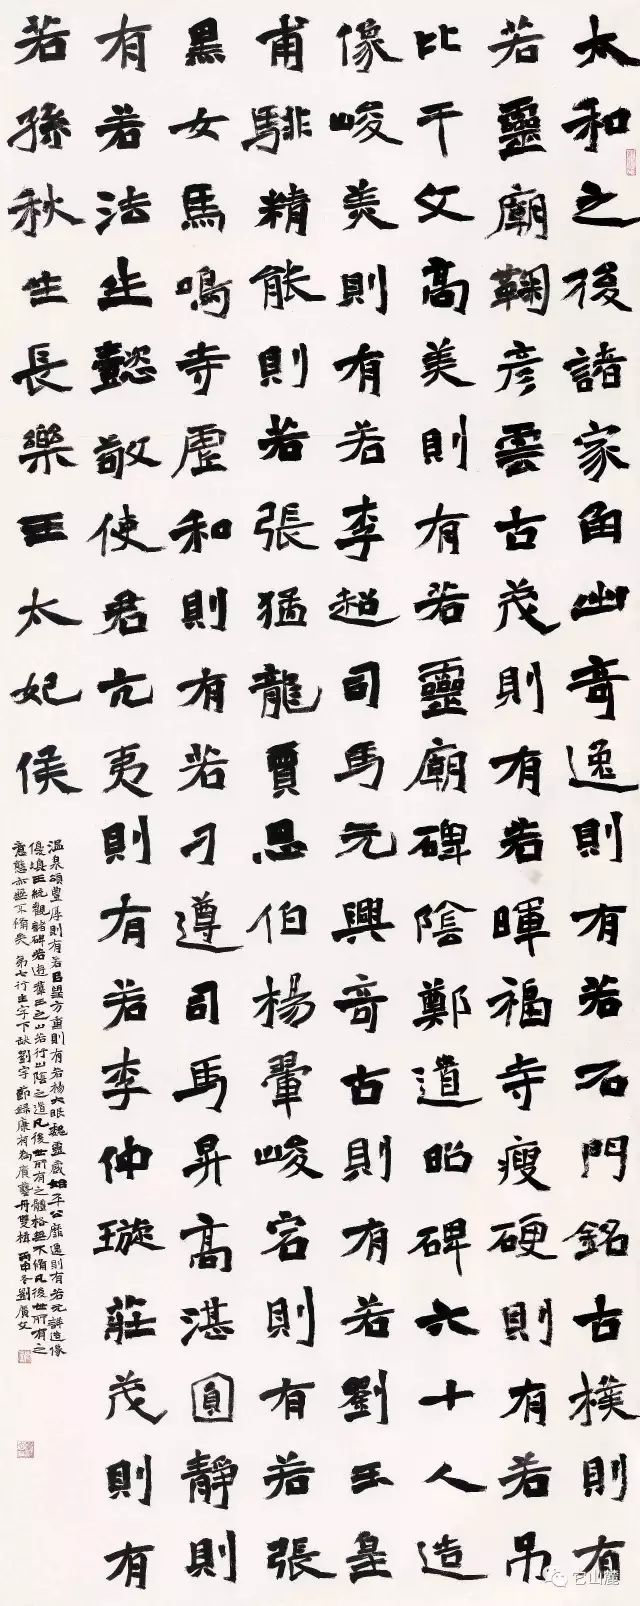 太和之後諸家角出奇逸則有若石門銘古樸則有
若靈廟鞠彥雲古茂則有若暉福寺瘦硬則有若吊
比干文高美則有若靈廟碑陰鄭道昭碑六十人造
像峻美則有若李超司馬元興奇古則有若劉玉皇
甫騑精能則若張猛龍賈思伯楊翬峻宕則有若張
黑女馬鳴寺虛和則有若刁遵司馬昇高湛圓靜則
有若法生懿敬使君亢夷則有若李仲璇莊茂則有
若孫秋生長樂王太妃侯
溫泉頌豐厚則有若呂望方重則有若楊大眼魏靈藏始平公靡逸則有若元詳造像
優填王統觀諸碑若遊群玉之山若行山陰之道凡後世所有之體格無不備凡後世所有之
意態亦無不備矣 第七行生字下缺劉字 節錄康有為廣藝舟雙楫 丙申冬劉廣文
它山麓